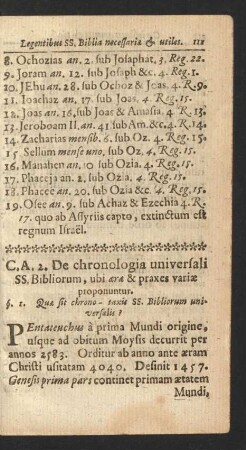 Legentibus SS. Biblia necessariæ & utiles. 111
8. Ochozias an. 2. sub Josaphat. 3. Reg. 22.
9. Joram an. 12. sub Josaph &c. 4. Reg. 1.
10. JEhu an. 28. sub Ochoz & Joas. 4. R. 9.
11. Joachaz an. 17. sub Joas. 4. Reg. 15.
12. Joas an. 16. sub Joas & Amasia. 4. R. 13.
13. Jeroboam II, an. 41 sub Am. &c. 4. R. 14.
14. Zacharias mensib. 6. sub Oz. 4. Reg. 15.
15 Sellum mense uno, sub Oz. 4. Reg. 15.
16. Manahen an. 10 sub Ozia. 4. Reg. 15.
17. Phaceja an. 2. sub Ozia. 4. Reg. 15.
18. Phacee an. 20. sub Ozia &c. 4. Reg. 15.
19. Osee an. 9. sub Achaz & Ezechia 4. R.
17. quo ab Assyriis capto, extinctum est
regnum Israël.
CA. 2. De chronologia universali
SS. Bibliorum, ubi æra & praxes variæ
proponuntur.
§. 1. Quæ sit chrono-taxis SS. Bibliorum uni-
versalis?
PEntateuchus à prima Mundi origine,
usque ad obitum Moysis decurrit per
annos 2583. Orditur ab anno ante æram
Christi usitatam 4040. Definit 1457.
Genesis prima pars continet primam ætatem
Mundi,